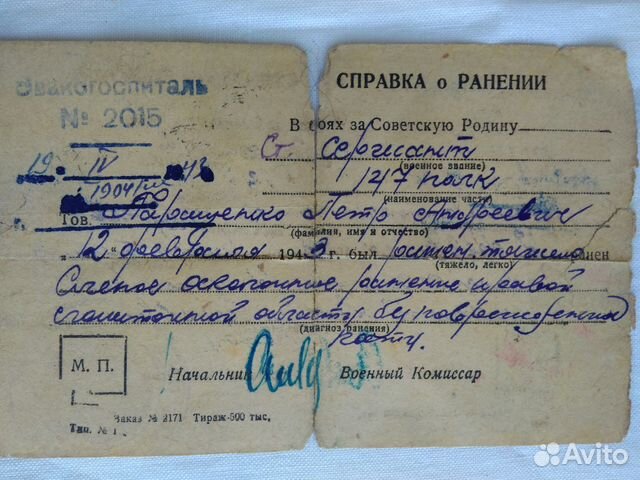 Эвакогоспиталь
№ 2015
СПРАВКА о РАНЕНИИ
В боях за Советскую Родину
Ст сержант
19 IV 43
(военное звание)
147 полк
1904
(наименование части)
Тов Петр Андреевич
(фамилия, имя и отчество)
„12" февраля 1943 г. был ранен тяжело ранен
(тяжело, легко)
Слепое осколочное ранение правой
области без повреждения
(диагноз ранения)
кости.
М. П.
Начальник Военный Комиссар
Заказ № 2171 Тираж-500 тыс.
Тип. № 1
Avito